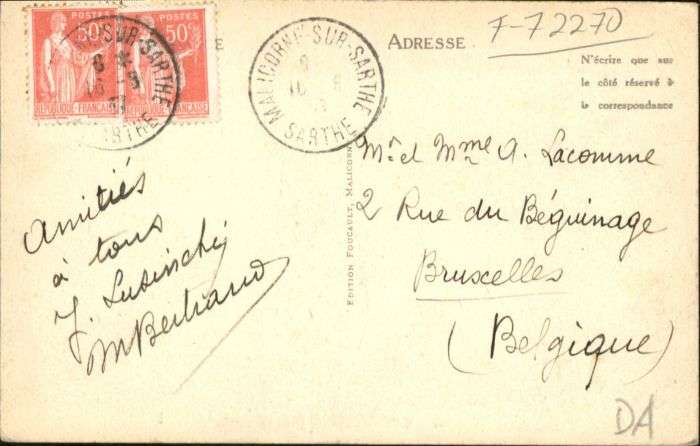 POSTES POSTES
50c 50c
RÉPUBLIQUE FRANÇAISE RÉPUBLIQUE FRANÇAISE
SUR-SARTHE
MALICORNE-SUR-SARTHE
SARTHE
ADRESSE
F-72270
N'écrire que sur
le côté réservé à
la correspondance
Amitiés
à tous
J. Lusinchi
M Bertrand
Edition FOUCAULT, MALICORNE
Mr et Mme A. Lacomme
2 Rue du Béguinage
Bruxelles
(Belgique)
DA